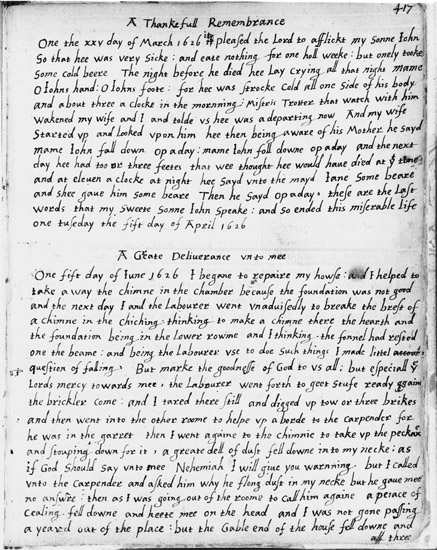 417
A Thankefull Remembrance
One the xxv day of March 1626 it pleased the Lord to afflickt my Sonne Iohn
So that hee was very Sicke: and eate nothing for one holl weeke: but onely tooke
Some cold beere The night before he died hee Lay Crying all that night mame
O Iohns hand: O Iohns foote: for hee was strocke Cold all one Side of his body
and about three a clocke in the mornning: Misteris Trotter that watch with him
Wakened my wife And I and tolde vs hee was a departing now And my wife
Started vp and Looked vpon him hee then being aware of his Mother he Sayd
mame Iohn fall down op a day: mame Iohn fall downe op a day and the next
day hee had too or three feetes that wee thought hee would haue died at yt time
and at eleuen a clocke at night hee Sayd vnto the mayd Iane Some beare
and Shee gaue him Some beare Then he Sayd op a day, these are the Last
words that my Sweete Sonne Iohn Speake: and so ended this miserable life
one tuseday the fift day of April 1626
A Greate Deliuerance vnto mee
One fift day of Iune 1626 I begane to repaire my howse: and I helped to
take a way the chimne in the chamber because the foundation was not good
and the next day I and the Labourer went vnaduisedly to breake the brest of
a chimne in the chiching thinking to make a chimne there the hearth and
the foundation being in the Lower rowme and I thinking the fonnel had rested
one the beame: and being the Labourer vse to doe Such things I made littel account
question of falling, But marke the goodnesse of God to vs all; but especiall ye
Lords mercy towards mee, the Labourer went forth to geet Stufe ready against
the brickler come: and I tared there still and digged vp tow or three brikes
and then went into the other roome to helpe vp a borde to the Carpender for
he was in the garret then I went againe to the chimnie to take vp the peckaxe
and stouping down for it, a greate dell of dust fell downe into my necke: as
if God Should Say vnto mee Nehemiah I will giue you warnning but I called
vnto the Carpender and asked him why he flong dust in my necke but he gaue mee
no answere: then as I was going out of the roome to Call him againe a peiace of
Cealing fell downe and heete mee on the head and I was not gone passing
a yeard out of the place: but the Gable end of the house fell downe and
all three